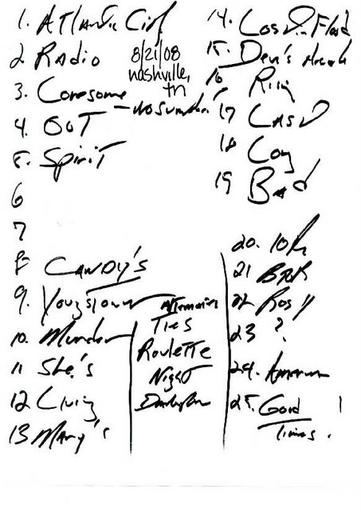 1. Atlantic Cit
2 Radio
8/21/08
nashville, tn
3. Lonesome
4. OOT
5. Spirit
6
7
8 Candy's
9. Youngstown
10. Murder
11 She's
12 Living
13 Mary's
Alternates
Ties
Roulette
Night
Darlington
14. Los in Flood
15. Devil's Arcade
16 Rising
17 LHSD
18 Long
19 Bad
20. 10th
21 BRR
22 Rosy
23 ?
24. American
25. Good
Times.